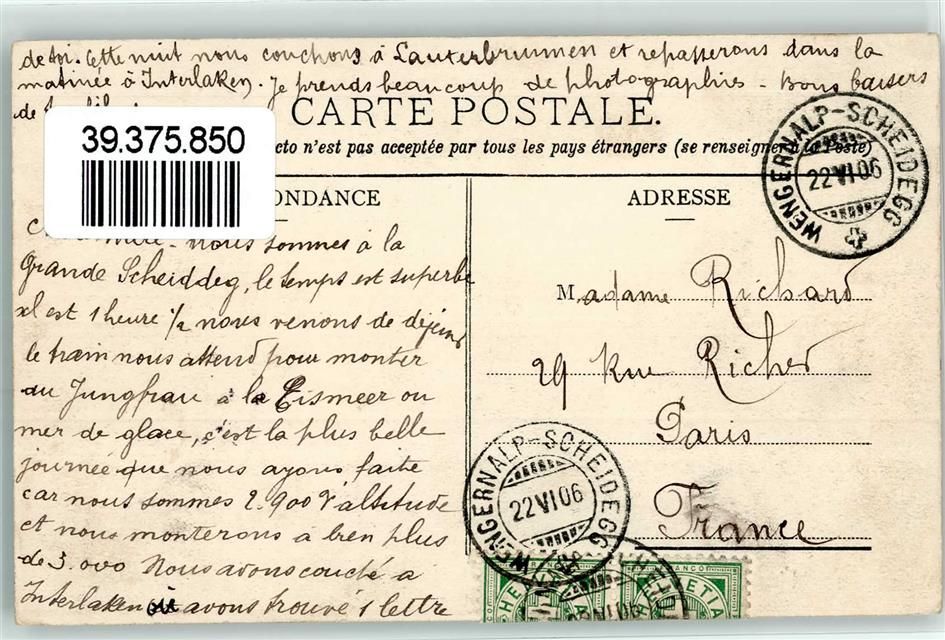 de toi. Cette nuit nous couchons à Lauterbrunnen et repasserons dans la
matinée à Interlaken. Je prends beaucoup de photographies - Bons baisers
de
CARTE POSTALE.
39.375.850
n'est pas acceptée par tous les pays étrangers (se renseigner à la Poste)
WENGERNALP-SCHEIDEGG
22 VI 06
ONDANCE
ADRESSE
nous sommes à la
Grande Scheiddeg, le temps est superbe
il est 1 heure 1/2 nous venons de déjeuner
le train nous attend pour monter
au Jungfrau à la Eismeer ou
mer de glace, c'est la plus belle
journée que nous ayons faite
car nous sommes 2.900 d'altitude
et nous monterons à bien plus
de 3.000 Nous avons couché à
Interlaken où avons trouvé 1 lettre
Madame Richard
29 Rue Richer
Paris
France
WENGERNALP-SCHEIDEGG
22 VI 06